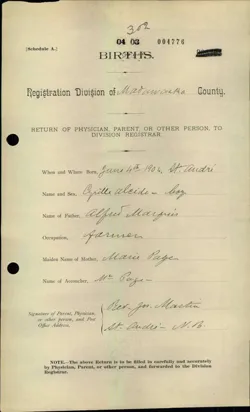 302
[Schedule A.]
04 03 004776
BIRTHS.
Registration Division of Madawaska County.
RETURN OF PHYSICIAN, PARENT, OR OTHER PERSON, TO
DIVISION REGISTRAR.
When and Where Born, June 4th 1904 St. André
Name and Sex, alcide - boy
Name of Father, Alfred
Occupation, farmer
Maiden Name of Mother, Marie Page
Name of Accoucher, Page
Signature of Parent, Physician,
or other person, and Post
Office Address.
Rev. Jos. Martin
St. André - N.B.
NOTE.—The above Return is to be filled in carefully and accurately
by Physician, Parent, or other person, and forwarded to the Division
Registrar.